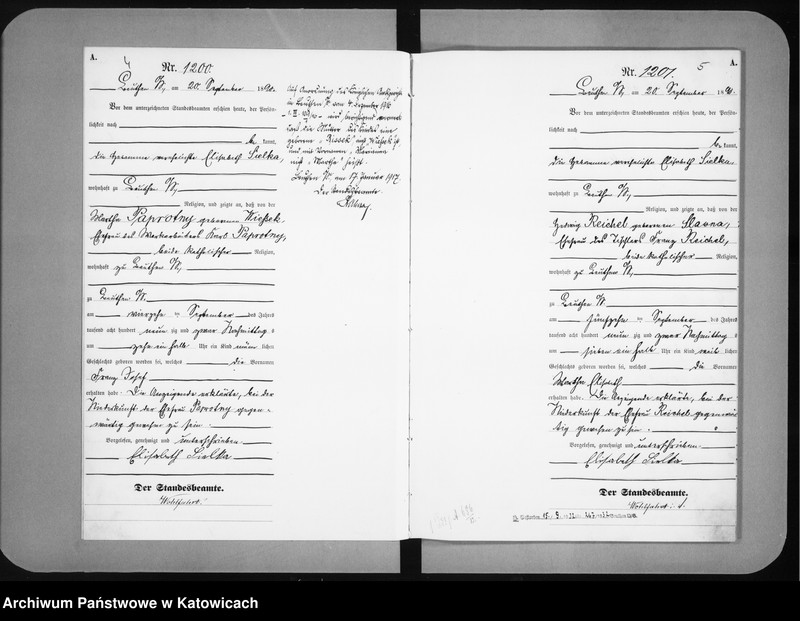 A.
4
Nr. 1200.
Beuthen O/S, am 20. September 1890.
Vor dem unterzeichneten Standesbeamten erschien heute, der Persön-
lichkeit nach
be kannt,
die Hebamme verehelichte Elisabeth Sielka
wohnhaft zu Beuthen O/S,
Religion, und zeigte an, daß von der
Martha Paprotny geborenen Wiessek
Ehefrau des Werkarbeiters Karl Paprotny,
beide katholischer Religion,
wohnhaft zu Beuthen O/S,
zu Beuthen O/S.
am vierzehn ten September des Jahres
tausend acht hundert neun zig und zwar Nachmittag s
um zehn ein halb Uhr ein Kind männ lichen
Geschlechts geboren worden sei, welches die Vornamen
Franz Josef
erhalten habe. Die Anzeigende erklärte, bei der
Niederkunft der Ehefrau Paprotny gegen-
wärtig gewesen zu sein.
Vorgelesen, genehmigt und unterschrieben
Elisabeth Sielka
Der Standesbeamte.
Wohlfahrt.
Auf Anordnung des Königlichen Amtsgerichts
in Beuthen O/S. vom 4. Dezember 1916
wird berichtigend vermerkt
daß die Mutter des Kindes eine
geborene
und mit Vornamen
nicht "Martha" heißt.
Beuthen O/S. am 17. Januar 1917.
Der Standesbeamte.
5
A.
Nr. 1201.
Beuthen O/S, am 20. September 1890.
Vor dem unterzeichneten Standesbeamten erschien heute, der Persön-
lichkeit nach
be kannt,
die Hebamme verehelichte Elisabeth Sielka
wohnhaft zu Beuthen O/S,
Religion, und zeigte an, daß von der
Hedwig Reichel geborenen Slavna,
Ehefrau des Tischlers Franz Reichel,
beide katholischer Religion,
wohnhaft zu Beuthen O/S,
zu Beuthen O/S.
am fünfzehn ten September des Jahres
tausend acht hundert neun zig und zwar Nachmittag s
um sieben ein halb Uhr ein Kind weib lichen
Geschlechts geboren worden sei, welches die Vornamen
Martha Elisabeth
erhalten habe. Die Anzeigende erklärte, bei der
Niederkunft der Ehefrau Reichel gegenwär-
tig gewesen zu sein.
Vorgelesen, genehmigt und unterschrieben.
Elisabeth Sielka
Der Standesbeamte.
Wohlfahrt.
Archiwum Państwowe w Katowicach